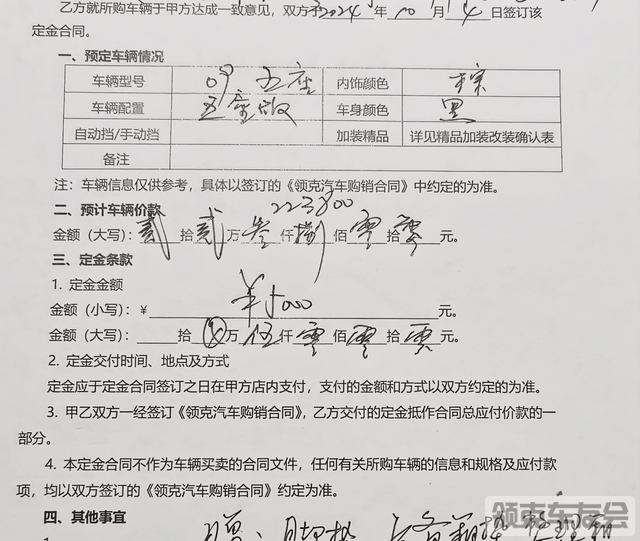 乙方就所购车辆于甲方达成一致意见，双方于2024年10月4日签订该
定金合同。
一、预定车辆情况
车辆型号 09 五座 内饰颜色 棕
车辆配置 五座版 车身颜色 黑
自动挡/手动挡 加装精品 详见精品加装改装确认表
备注
注：车辆信息仅供参考，具体以签订的《领克汽车购销合同》中约定的为准。
二、预计车辆价款 223800
金额（大写）：贰拾贰万叁仟捌佰零拾零元。
三、定金条款
1. 定金金额
金额（小写）：¥ ¥5000 元。
金额（大写）：拾万伍仟零佰零拾零元。
2. 定金交付时间、地点及方式
定金应于定金合同签订之日在甲方店内支付，支付的金额和方式以双方约定的为准。
3. 甲乙双方一经签订《领克汽车购销合同》，乙方交付的定金抵作合同总应付价款的一
部分。
4. 本定金合同不作为车辆买卖的合同文件，任何有关所购车辆的信息和规格及应付款
项，均以双方签订的《领克汽车购销合同》约定为准。
四、其他事宜
领克车友会